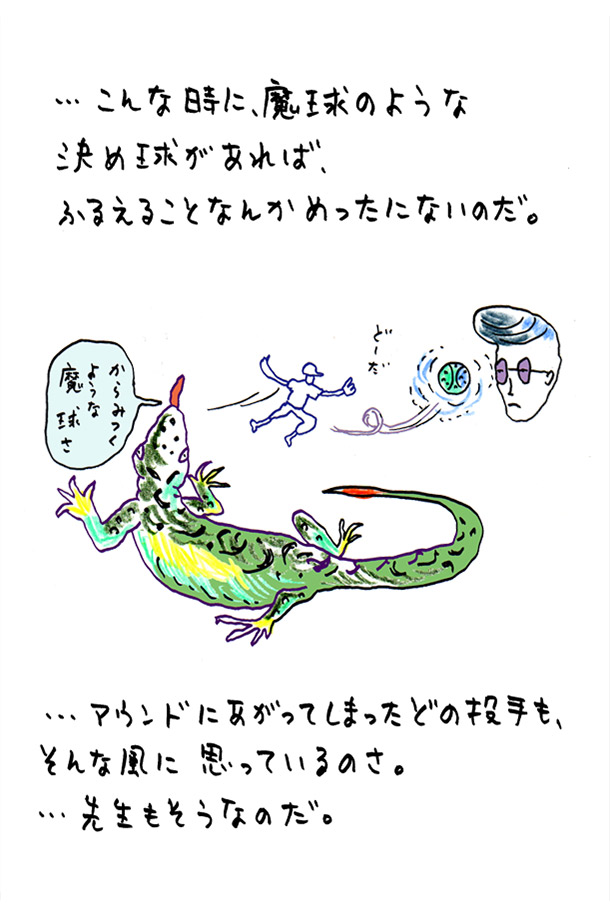 …こんな時に、魔球のような
決め球があれば、
ふるえることなんかめったにないのだ。
どーだ
からみつく
ような
魔球さ
…マウンドにあがってしまったどの投手も、
そんな風に思っているのさ。
…先生もそうなのだ。